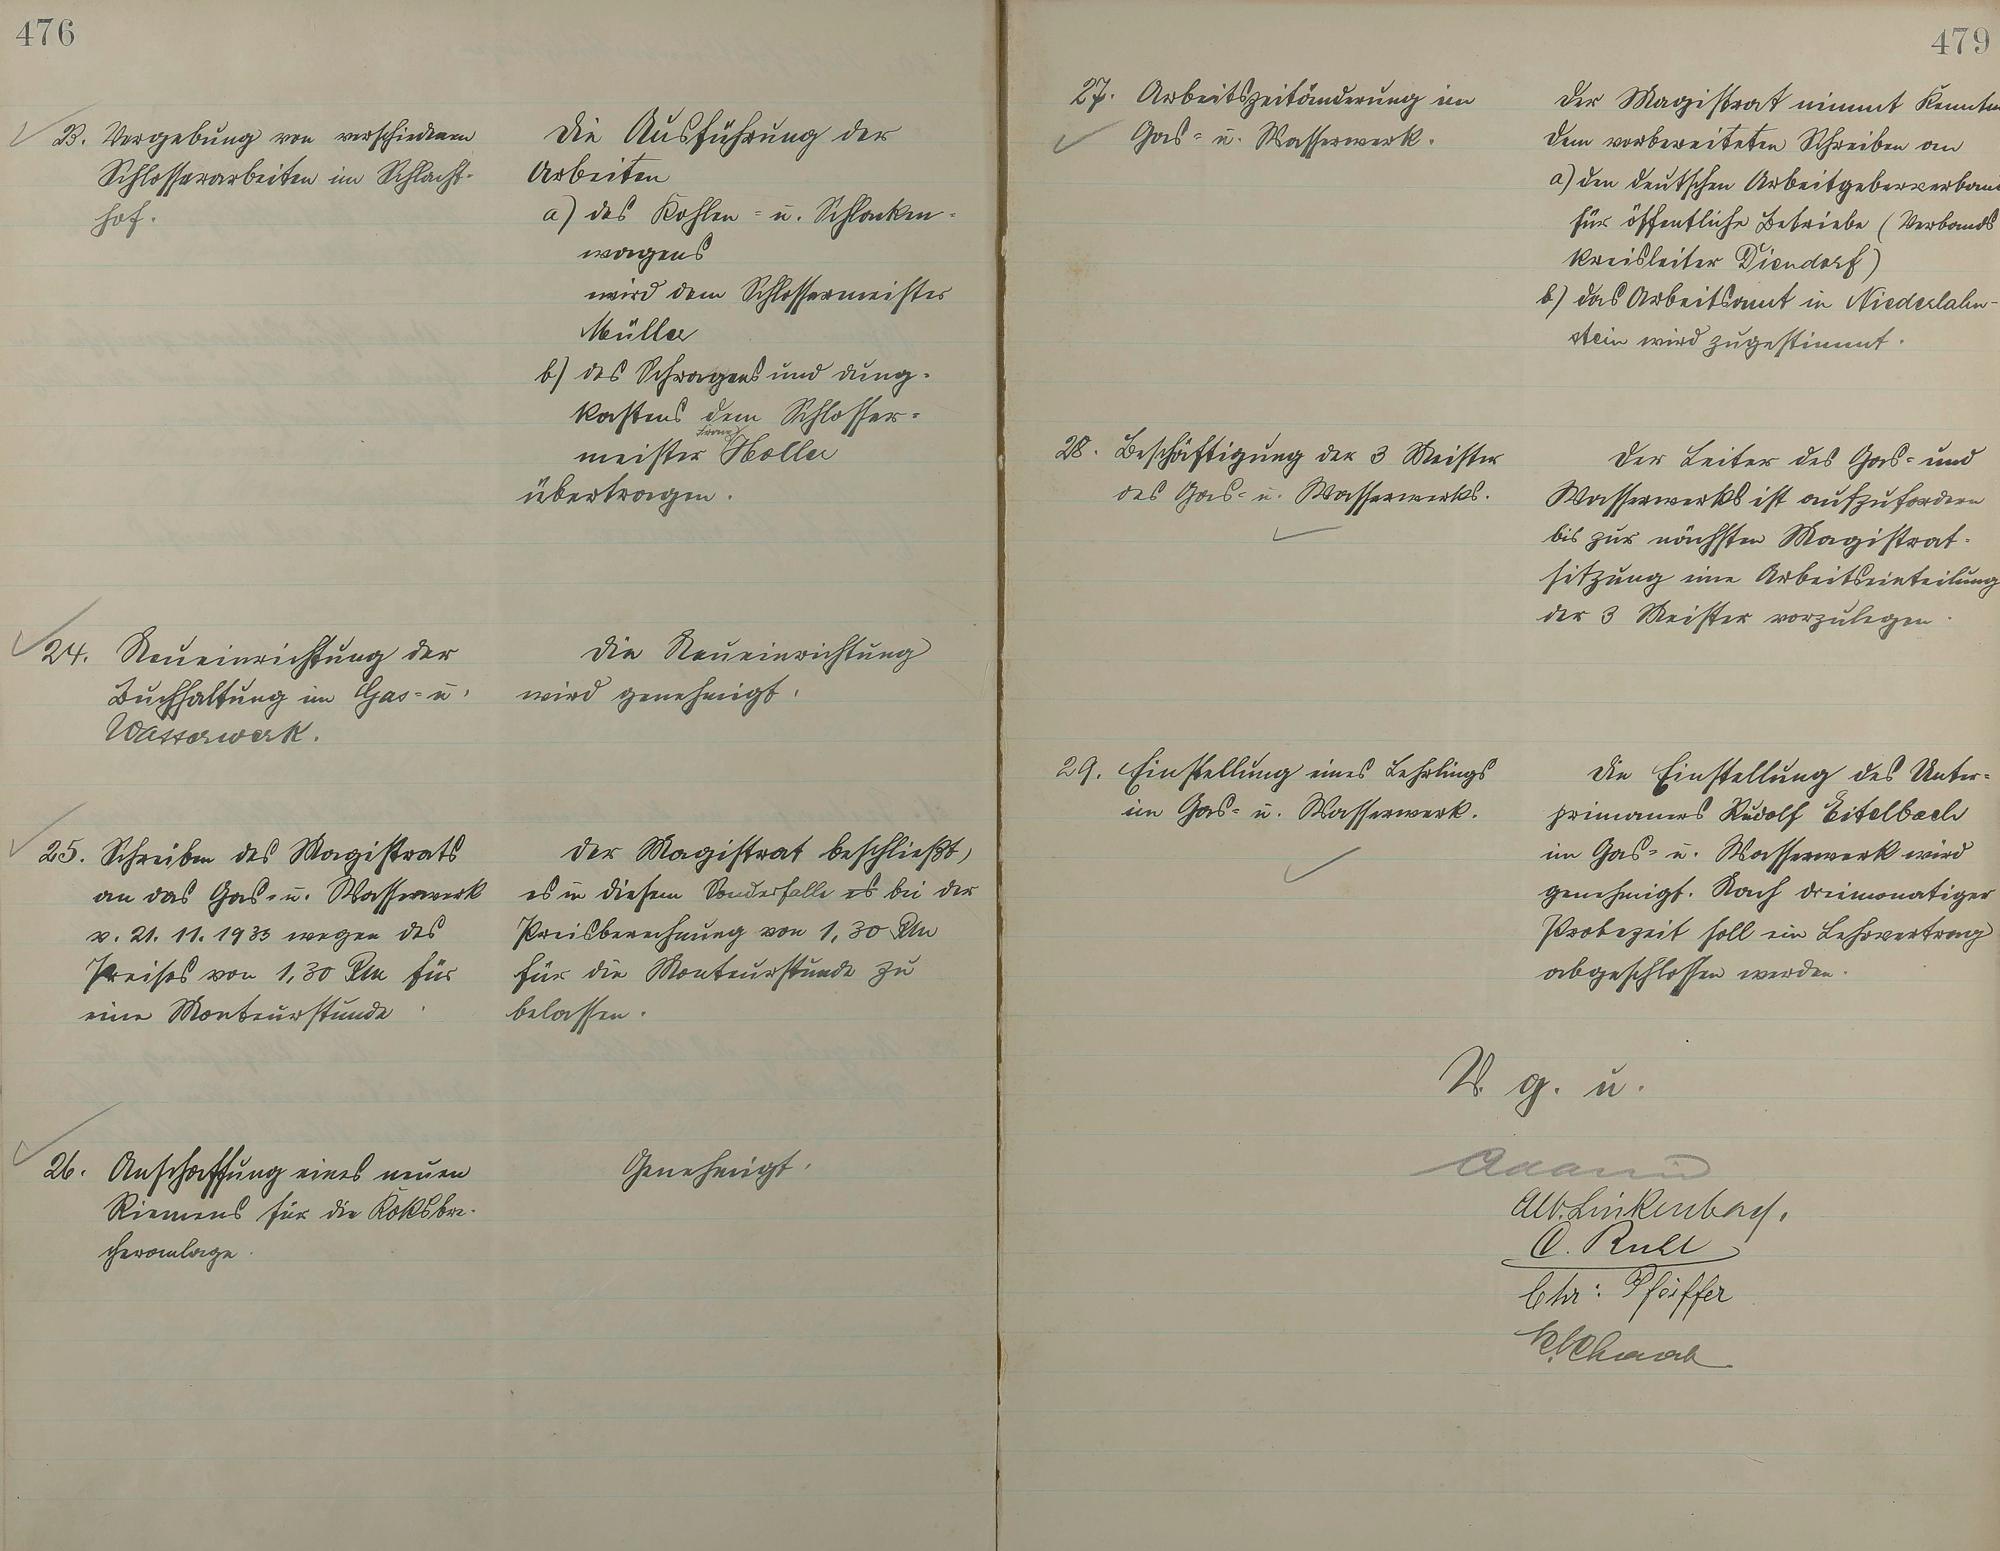 476
23. Vergebung von verschiedenen
Schlosserarbeiten im Schlacht-
hof.
Die Ausführung der
Arbeiten
a) des Kohlen- u. Schlacken-
wagens
wird dem Schlossermeister
Müller
b) des Schragens und Dung-
kastens dem Schlosser-
Franz
meister Holler
übertragen.
24. Neueinrichtung der
Buchhaltung im Gas- u.
Wasserwerk.
Die Neueinrichtung
wird genehmigt.
25. Schreiben des Magistrats
an das Gas- u. Wasserwerk
v. 21. 11. 1933 wegen des
Preises von 1,30 RM für
eine Monteurstunde.
Der Magistrat beschließt,
es in diesem Sonderfalle es bei der
Preisberechnung von 1,30 RM
für die Monteurstunde zu
belassen.
26. Anschaffung eines neuen
Riemens für die Koksbre-
cheranlage.
Genehmigt.
479
27. Arbeitszeitänderung im
Gas- u. Wasserwerk.
Der Magistrat nimmt Kenntn
Dem vorbereiteten Schreiben an
a) den deutschen Arbeitgeberverban
für öffentliche Betriebe (Verbands
kreisleiter Diendorf)
b) das Arbeitsamt in Niederlahn-
stein wird zugestimmt.
28. Beschäftigung der 3 Meister
des Gas- u. Wasserwerks.
Der Leiter des Gas- und
Wasserwerks ist aufzufordern
bis zur nächsten Magistrat-
sitzung eine Arbeitseinteilung
der 3 Meister vorzulegen.
29. Einstellung eines Lehrlings
im Gas- u. Wasserwerk.
Die Einstellung des Unter-
primaners Rudolf Eitelbach
im Gas- u. Wasserwerk wird
genehmigt. Nach dreimonatiger
Probezeit soll ein Lehrvertrag
abgeschlossen werden.
V. g. u.
Alb. Linkenbach.
Chr: Pfeiffer